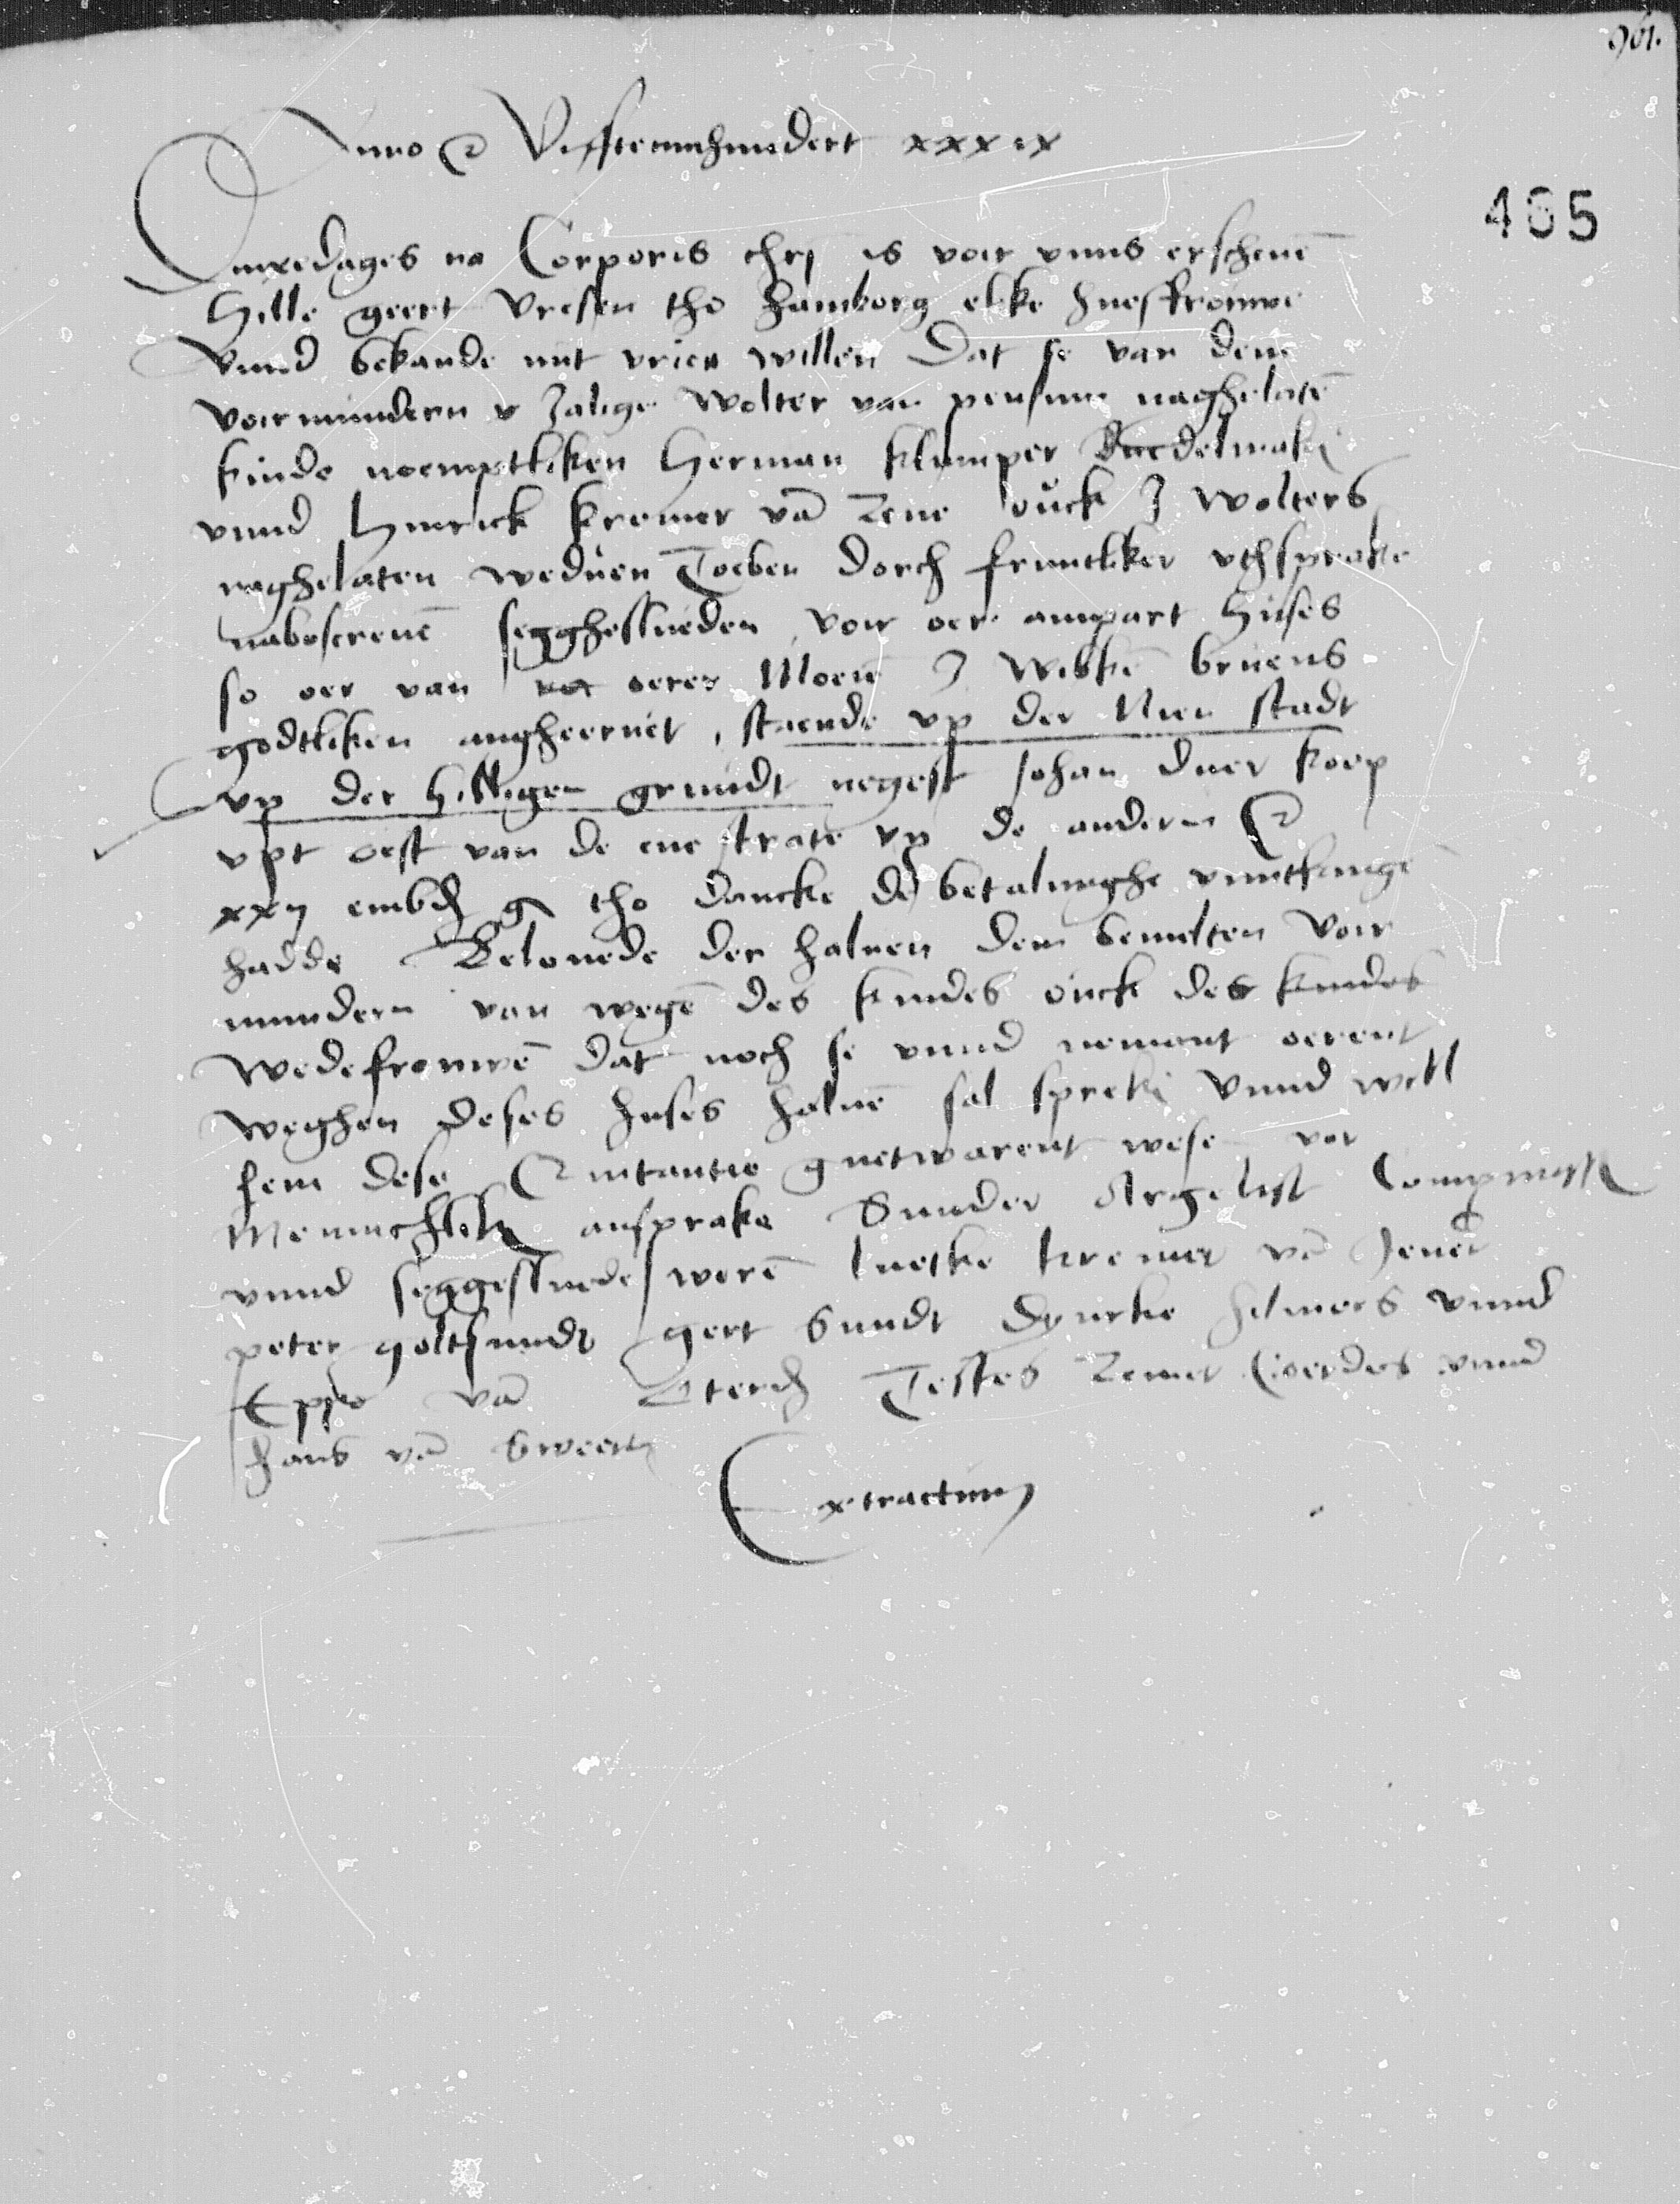 961.
Anno &c Viffteinnhundert xxxix
405
Sunnedages na Corporis chrj is voir vnns erschene
Hille geert vresen tho Hamborg elike huesfrouwe
Vnnd bekande mit vrien willen Dat se van denn
voirmundern v zalige Wolter van pensum naghelate
kinde noemptliken Herman klumper Buedelmaker
vnnd Hinrick kremer va Zene ouck Z Wolters
naghelaten weduen Toeben dorch fruntliker vthsprake
nabescreuen segghesslueden voir oer anpart Huses
so oer van oerer Moene Z Wibke bruens
godtliken angheeruet, staende vp der Nien stadt
vp der Hilligen grundt negest Johan duer koep
vpt oest van de ene strate vp de anderen &c
xxij embd g tho dancke de betalinghe vnntfange
hadde Belouede der haluen den bemelten Voir
mundern van wegen des kindes ouck des kindes
Wedefrouwen dat noch se vnnd nemant oerent
weghen deses huses haluen sal spreken Vnnd will
hem dese Quitantie guetwarent wese vor
Mennichliken ansprake Sunder Argelist Compmissz
vnnd seggesslude weren luetke kremer va Jeuer
peter goltsmidt gert Smidt Dyrcke hilmers vnnd
Eppo va Zterd Testes Zemer Coerdes vnnd
hans va Sweetz
Extractum